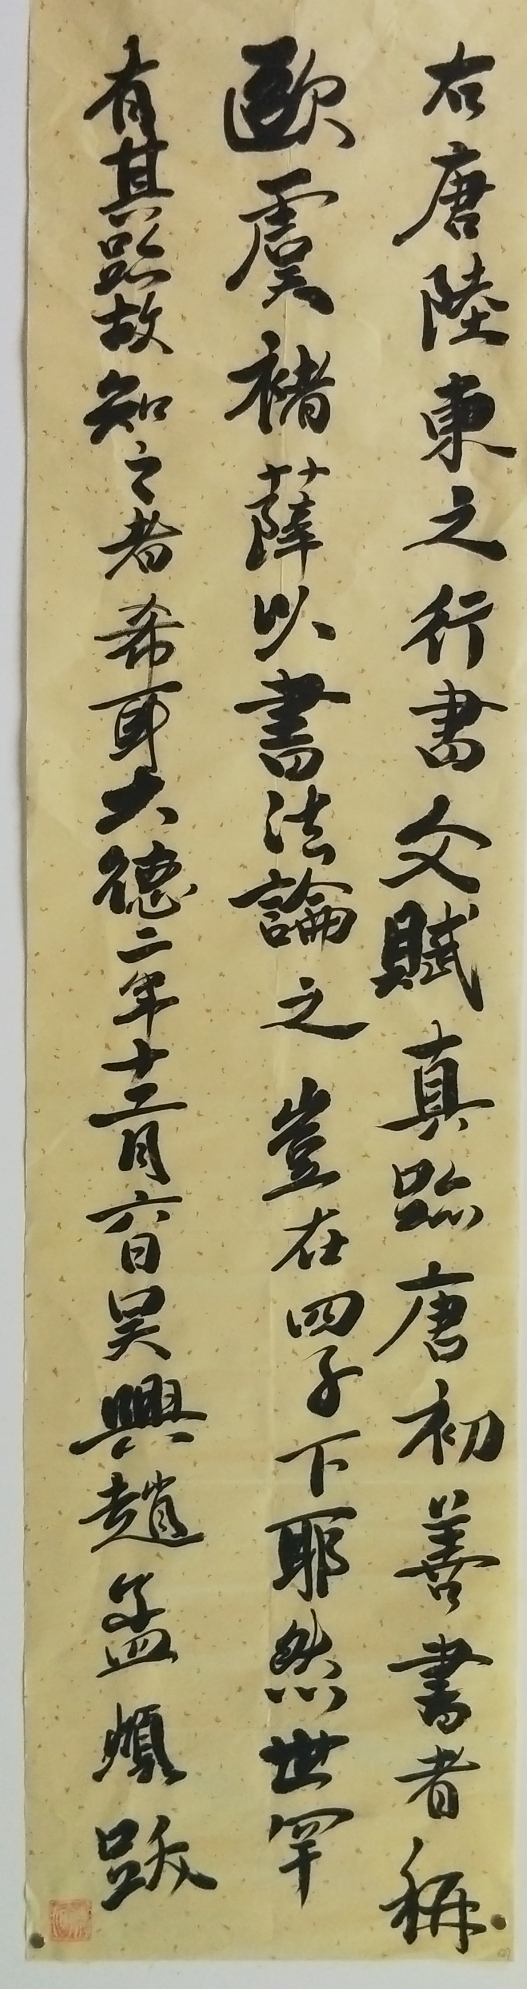 右唐陸東之行書文賦真跡唐初善書者稱
歐虞褚薛以書法論之豈在四子下耶然世罕
有其跡故知之者希耳大德二年十二月六日吴興趙孟頫跋